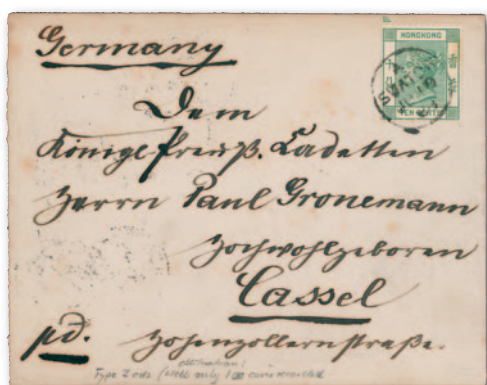 Germany
HONGKONG
TEN CENTS
Dem
Königl. Preuß. Cadetten
Herrn Paul Gronemann
Hochwohlgeboren
Cassel
pd. Hohenzollernstraße.
Type 2 cds only recorded